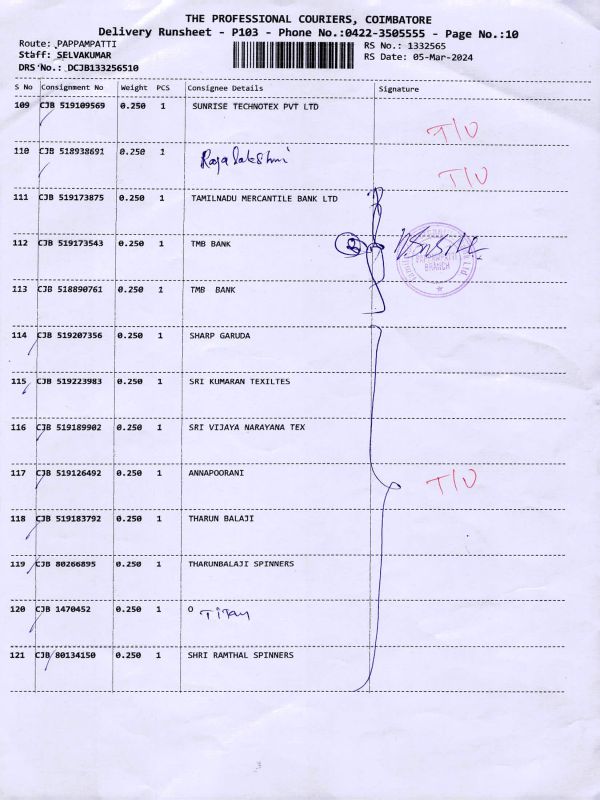 THE PROFESSIONAL COURIERS, COIMBATORE
Delivery Runsheet - P103 - Phone No.:0422-3505555 - Page No.:10
Route: PAPPAMPATTI
RS No.: 1332565
Staff: SELVAKUMAR
RS Date: 05-Mar-2024
DRS No.: DCJB133256510
S No Consignment No Weight PCS Consignee Details Signature
109 CJB 519109569 0.250 1 SUNRISE TECHNOTEX PVT LTD T/U
110 CJB 518938691 0.250 1 Rajalakshmi T/U
111 CJB 519173875 0.250 1 TAMILNADU MERCANTILE BANK LTD
112 CJB 519173543 0.250 1 TMB BANK
BRANCH
113 CJB 518890761 0.250 1 TMB BANK
114 CJB 519207356 0.250 1 SHARP GARUDA
115 CJB 519223983 0.250 1 SRI KUMARAN TEXILTES
116 CJB 519189902 0.250 1 SRI VIJAYA NARAYANA TEX
117 CJB 519126492 0.250 1 ANNAPOORANI T/U
118 CJB 519183792 0.250 1 THARUN BALAJI
119 CJB 80266895 0.250 1 THARUNBALAJI SPINNERS
120 CJB 1470452 0.250 1 O Titan
121 CJB 80134150 0.250 1 SHRI RAMTHAL SPINNERS